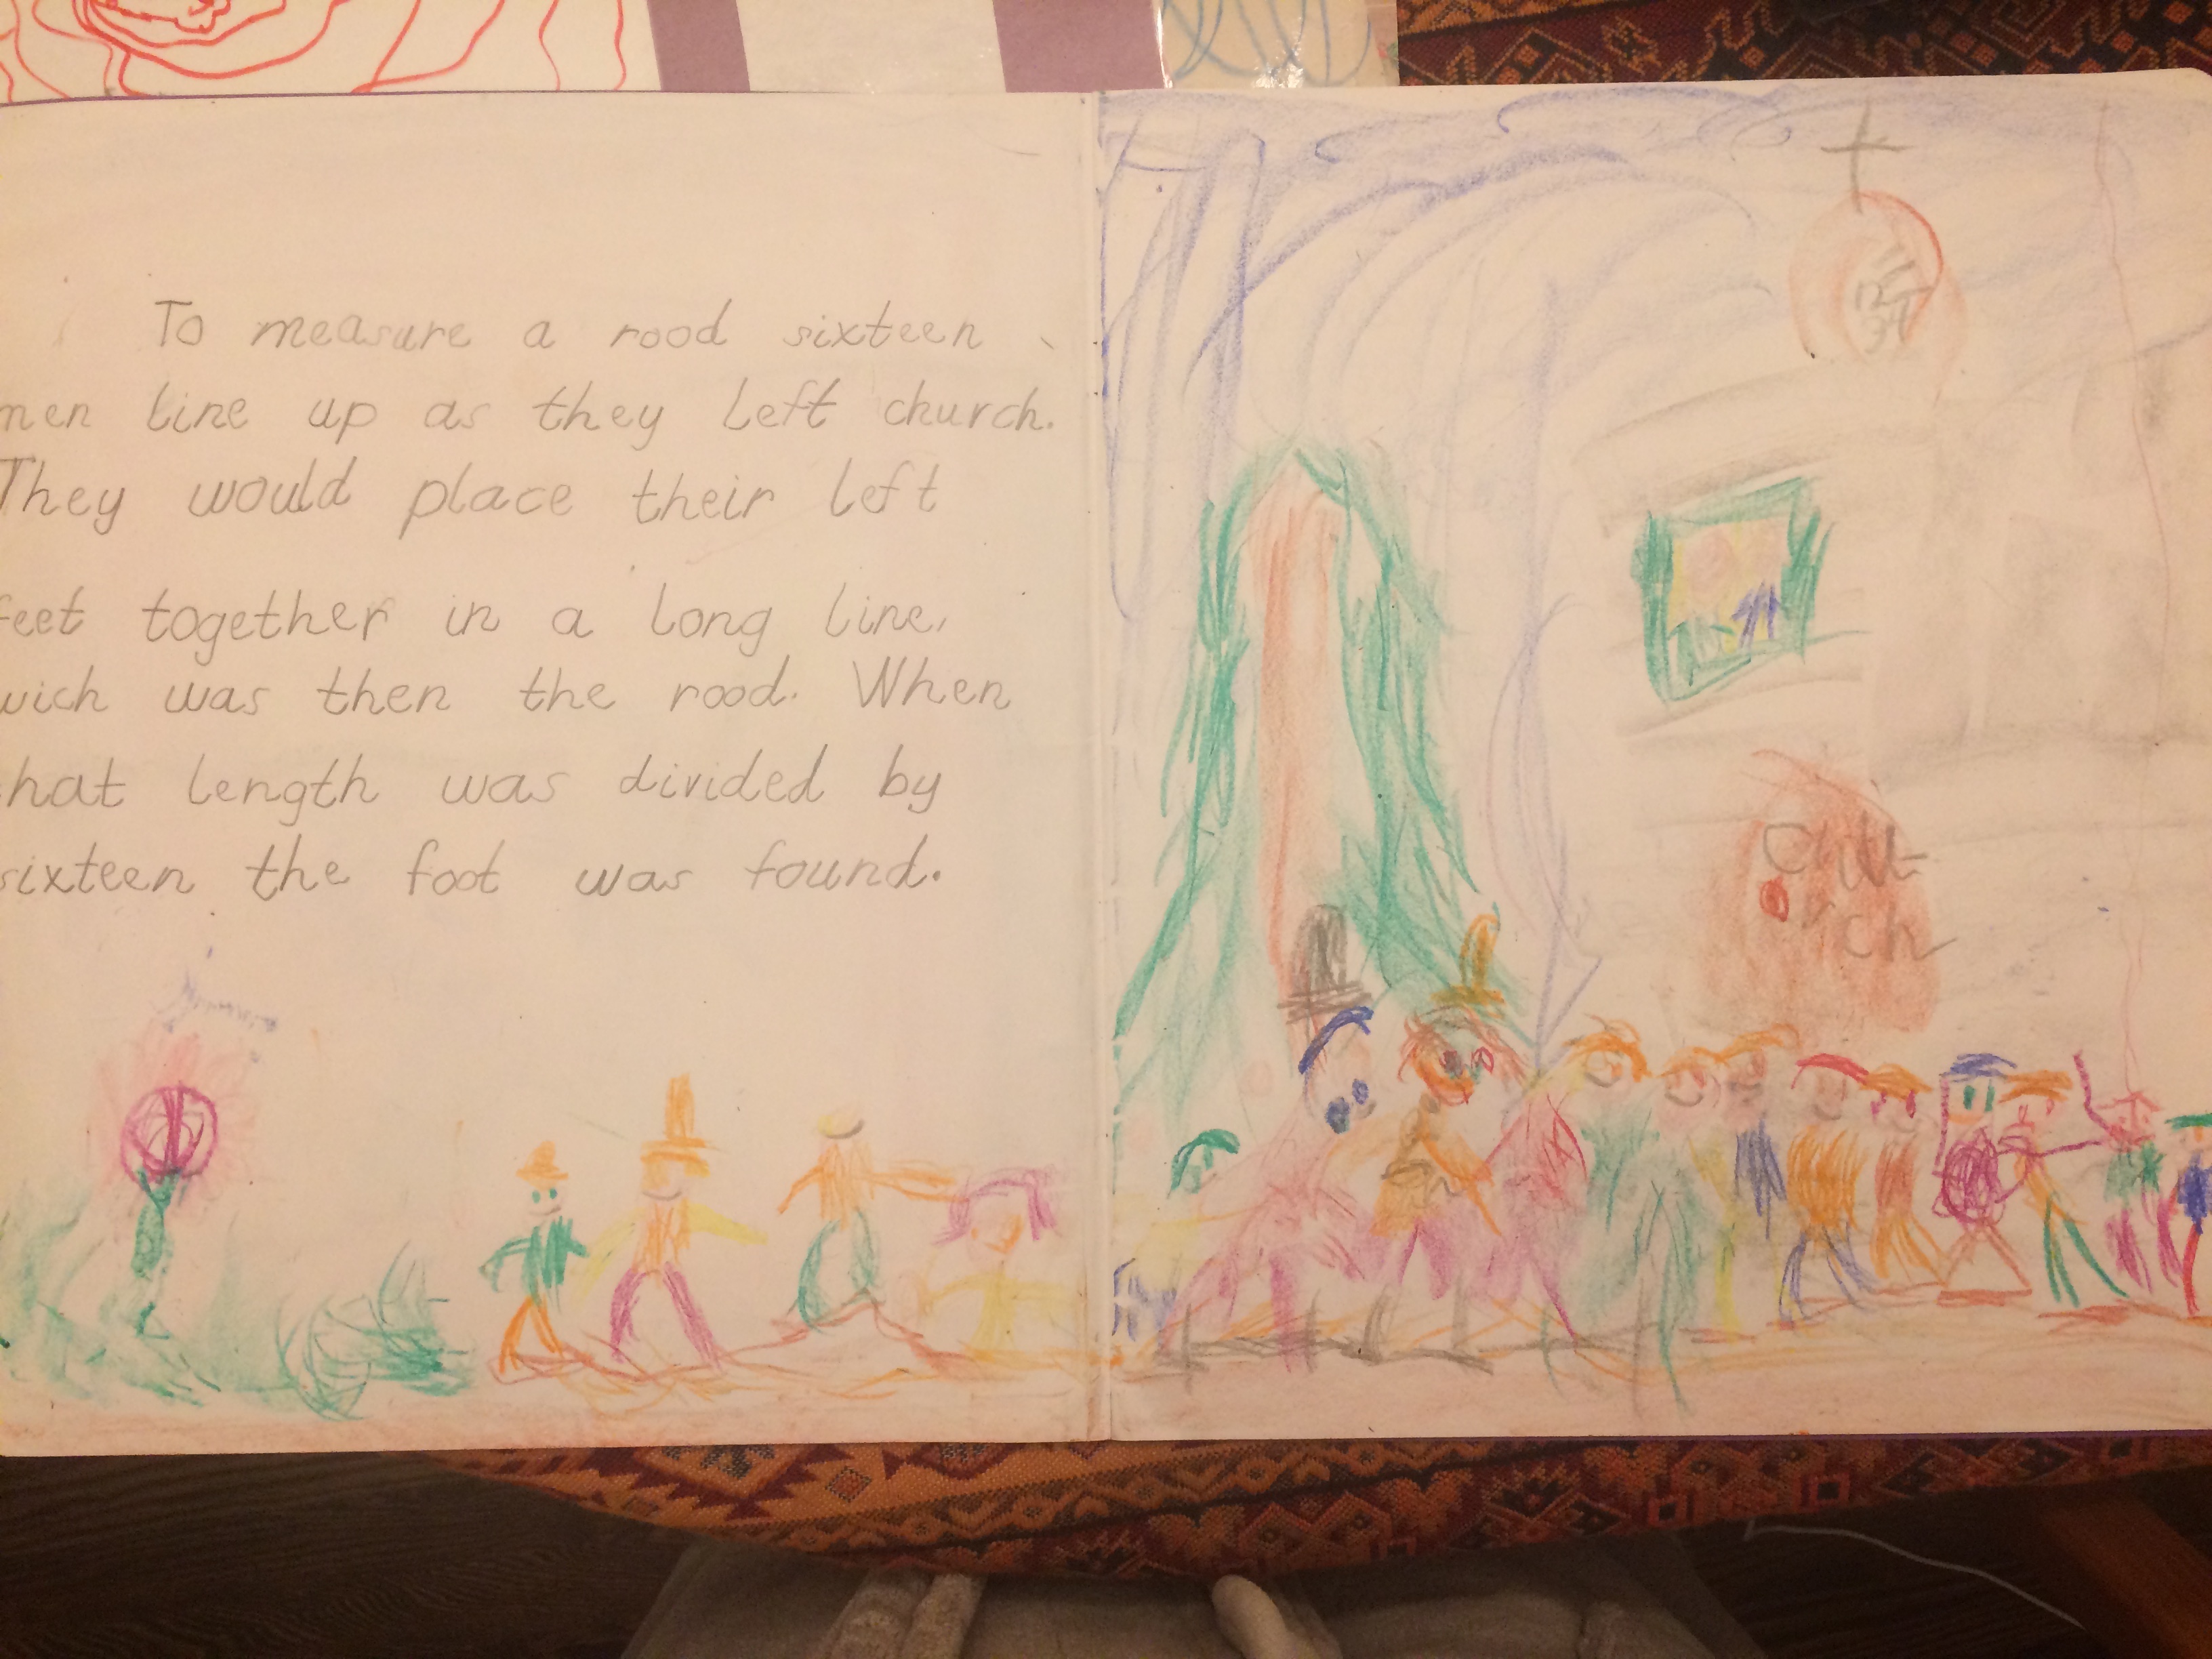 To measure a rood sixteen
men line up as they left church.
They would place their left
feet together in a long line,
wich was then the rood. When
that length was divided by
sixteen the foot was found.
Chu-
rch